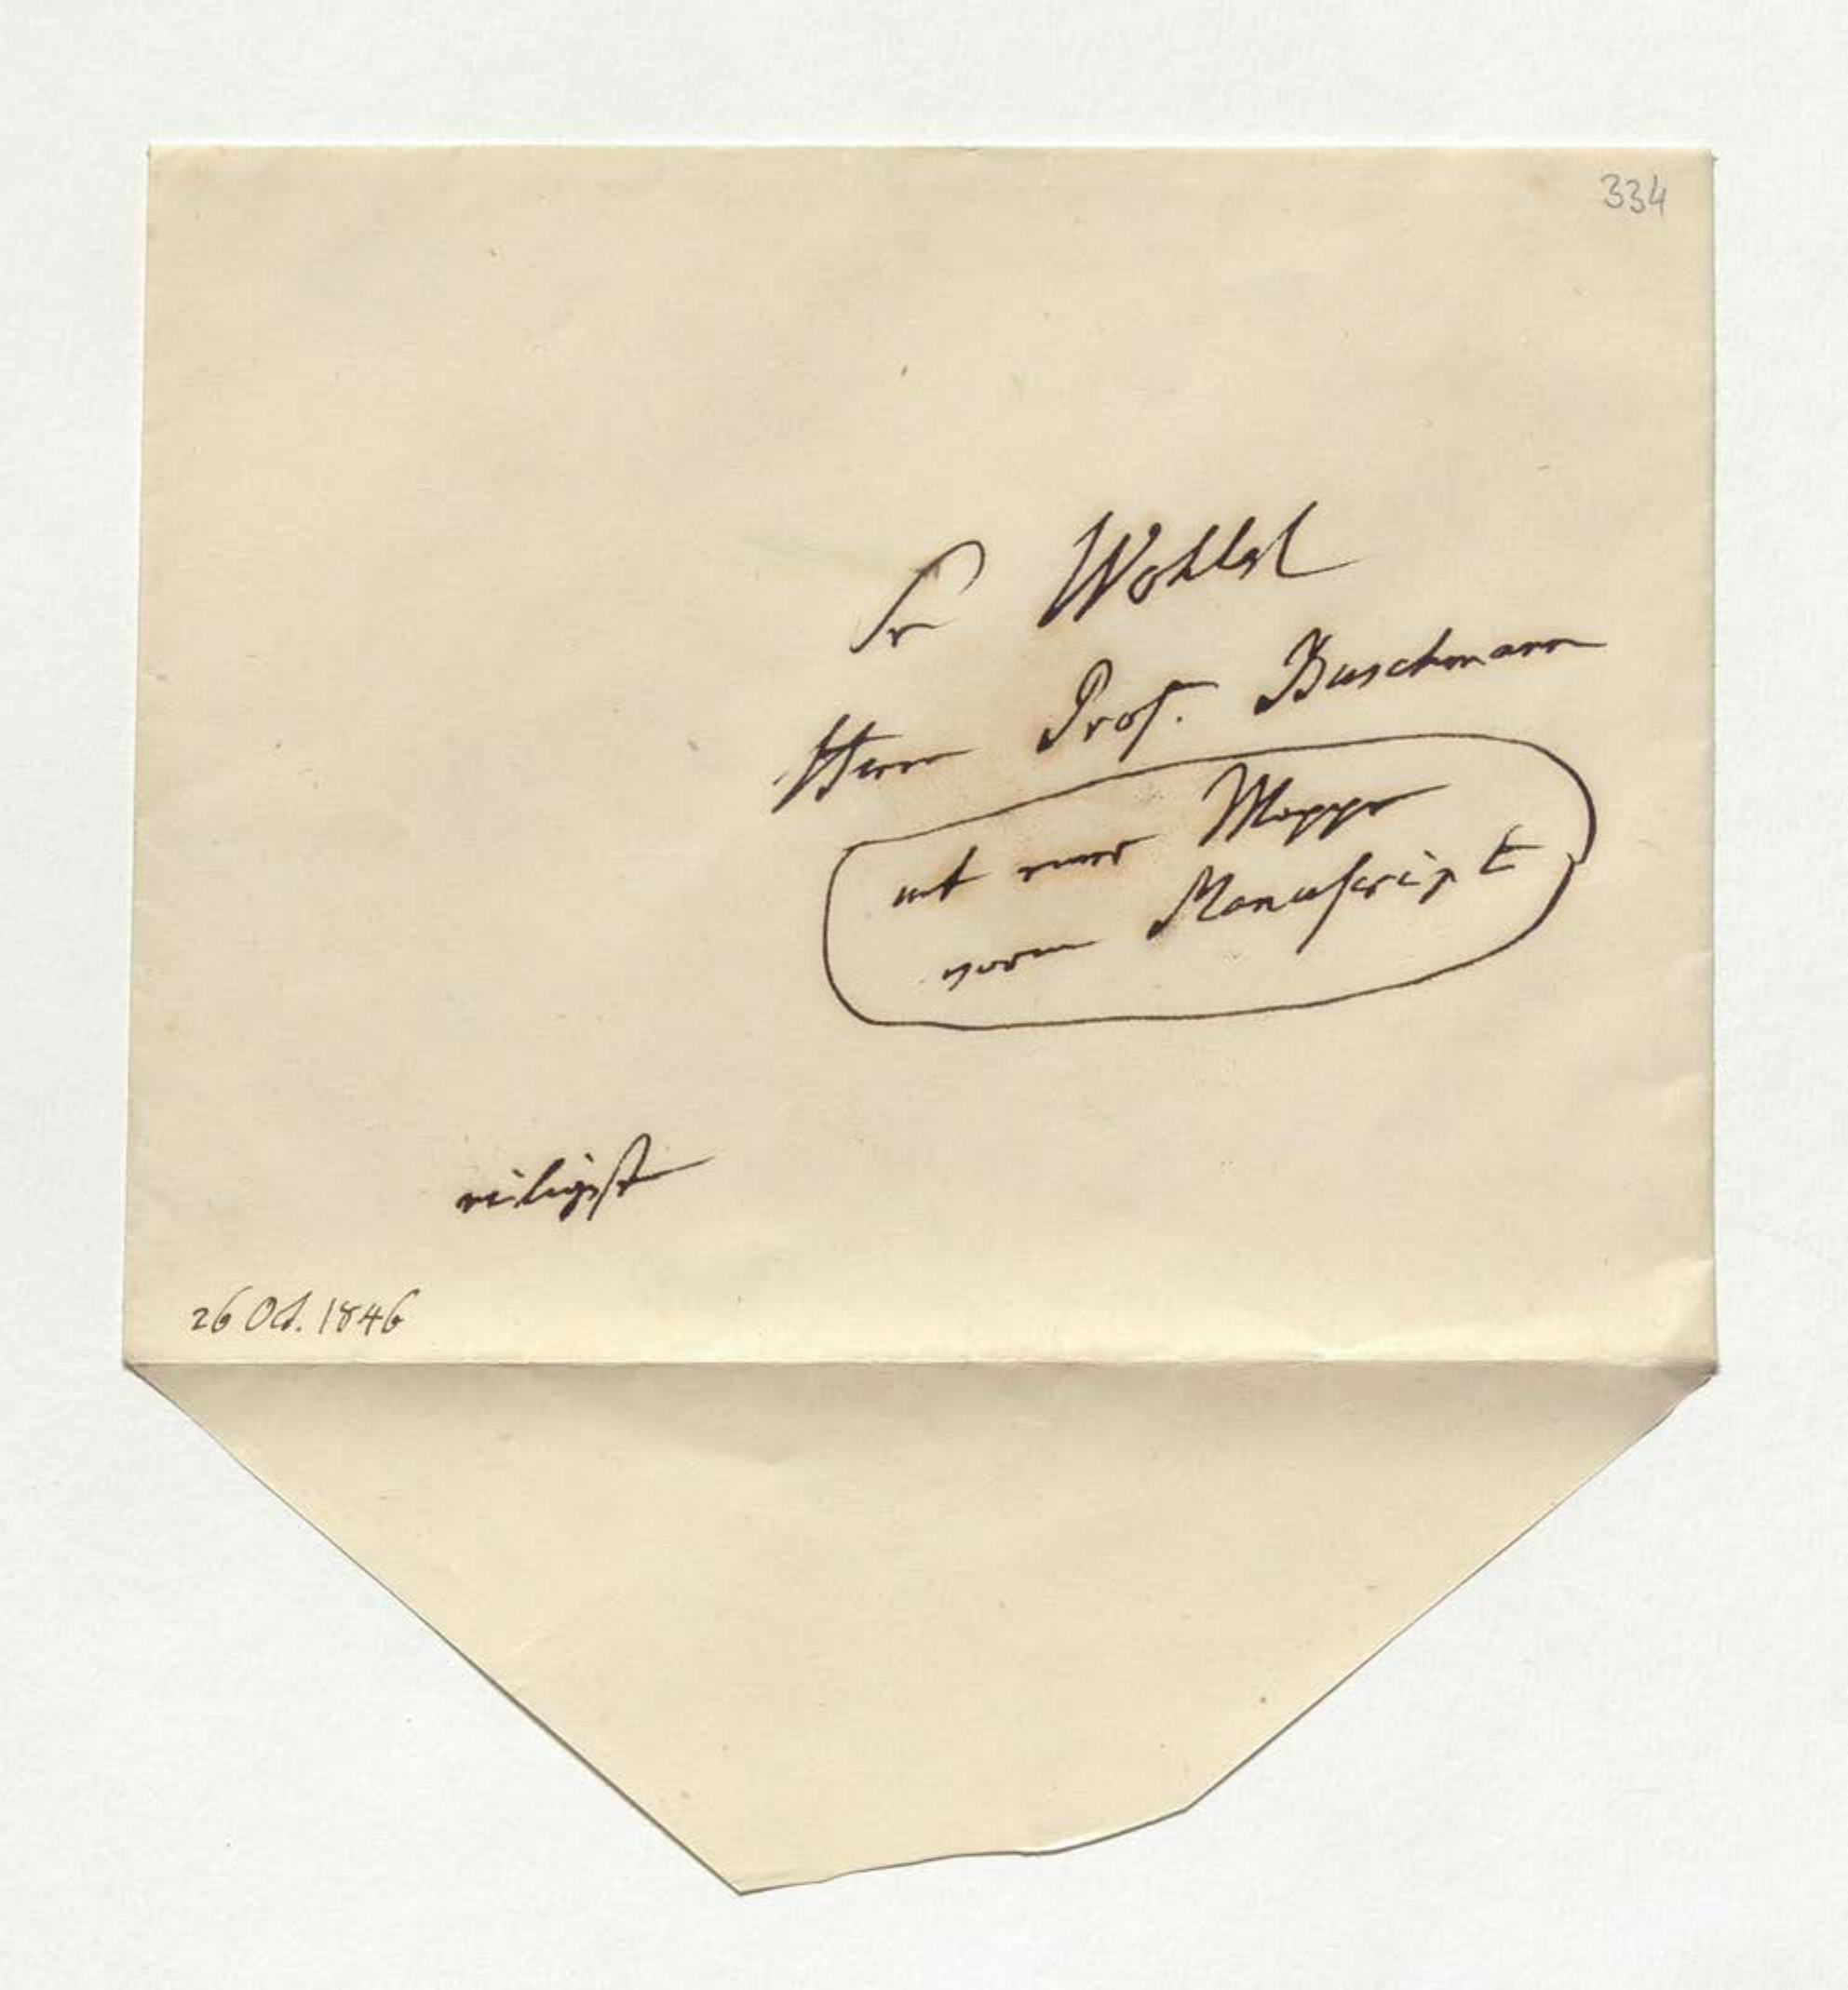 334
Sr Wohlgb
Herrn Prof. Buschmann
mit einer Mappe
voran Manuscript
eiligst
26 Oct. 1846